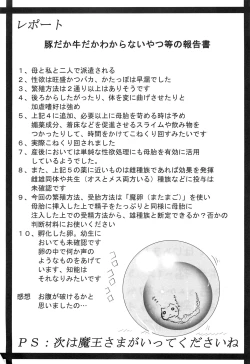 レポート
豚だか牛だかわからないやつ等の報告書
1、母と私と二人で派遣される
2、性欲は旺盛かつバカ、かたっぽは早漏でした
3、繁殖方法は2通り以上はありそうです
4、後ろからしたがったり、体を変に曲げさせたりと
加虐嗜好は強め
5、上記4に追加、必要以上に母胎を苛める時は予め
媚薬成分、着床などを促進させるスライムや飲み物を
つかったりして、時間をかけてこねくり回すみたいです
6、実際こねくり回されました
7、産後においては単純な性欲処理にも母胎を有効に活用
しているようでした。
8、また、上記5の薬に近いものは雄種族であれば効果を発揮
雌雄同体や共生（オスとメス両方いる）種族などに投与は
未確認です
9、今回の繁殖方法、受胎方法は「魔卵（またまご）」を使い
母胎に挿入した上で精子をたっぷりと同様に母胎に
注入した上での受精方法から、雄種族と断定できるか？否かの
判断材料にお使いください
10、孵化した卵。幼生に
おいても未確認です
卵の中で何か声の
ようなものをあげて
います、知能は
それなりみたいです
感想　お腹が破けるかと
思いましたの…
コロコロ
PS：次は魔王さまがいってくださいね